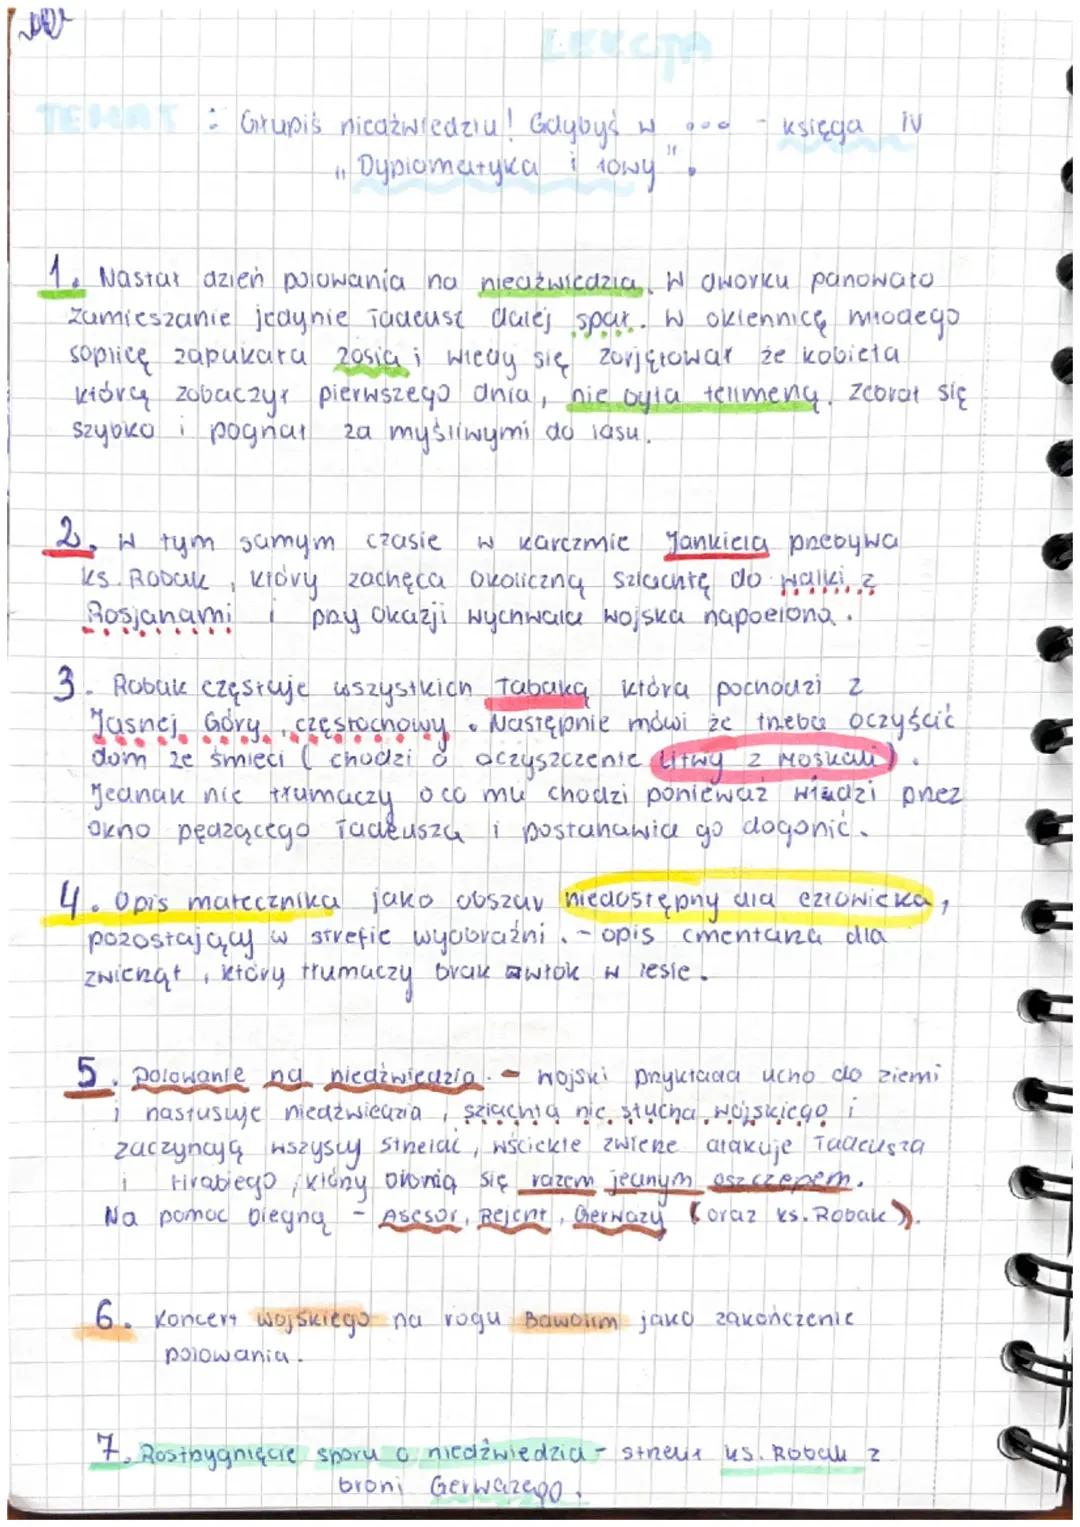 LEKCJA
TEMAT : Głupiś niedźwiedziu! Gdybyś w ... - księga IV
„Dyplomatyka i łowy".
1. Nastał dzień polowania na niedźwiedzia. W dworku panowało
zamieszanie jedynie Tadeusz dalej spał. W okiennicę młodego
soplicę zapukała zosia i wtedy się zorjętował że kobieta
którą zobaczył pierwszego dnia, nie była telimeną. Zebrał się
szybko i pognał za myśliwymi do lasu.
2. W tym samym czasie w karczmie Jankiela przebywa
ks. Robak, który zachęca okoliczną szlachtę do walki z
Rosjanami i przy okazji wychwala wojska napoelona.
3. Robak częstuje wszystkich Tabaką która pochodzi z
Jasnej Góry, częstochowy. Następnie mówi że trzeba oczyścić
dom ze śmieci ( chodzi o oczyszczenie Litwy z Moskali).
Jednak nie tłumaczy o co mu chodzi ponieważ widzi przez
okno pędzącego Tadeusza i postanawia go dogonić.
4. Opis matecznika jako obszar niedostępny dla człowieka,
pozostający w strefie wyobraźni. - opis cmentarza dla
zwierząt, który tłumaczy brak zwłok w lesie.
5. Polowanie na niedźwiedzia. - Wojski przykłada ucho do ziemi
i nasłusuje niedźwiedzia, szlachta nie słucha wojskiego i
zaczynają wszyscy strzelać, wściekłe zwierze atakuje Tadeusza
i Hrabiego, którzy bronią się razem jednym oszczepem.
Na pomoc biegną - Asesor, Rejent, Gerwazy (oraz ks. Robak).
6. Koncert wojskiego na rogu Bawolim jako zakończenie
polowania.
7. Rostrzygnięcie sporu o niedźwiedzia - strzelił ks. Robak z
broni Gerwazego.